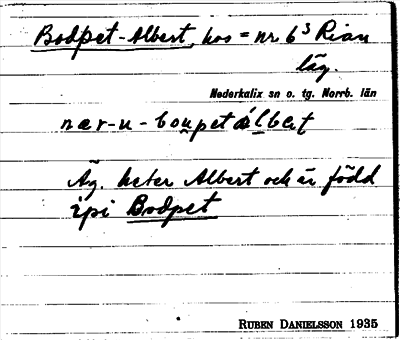 Bodpet-Albert, hos = nr 6³ Rian
läg.
Nederkalix sn o. tg. Norrb. län
nær-u-boupetálbert
Äg. heter Albert och är född
i pi Bodpet
RUBEN DANIELSSON 1935